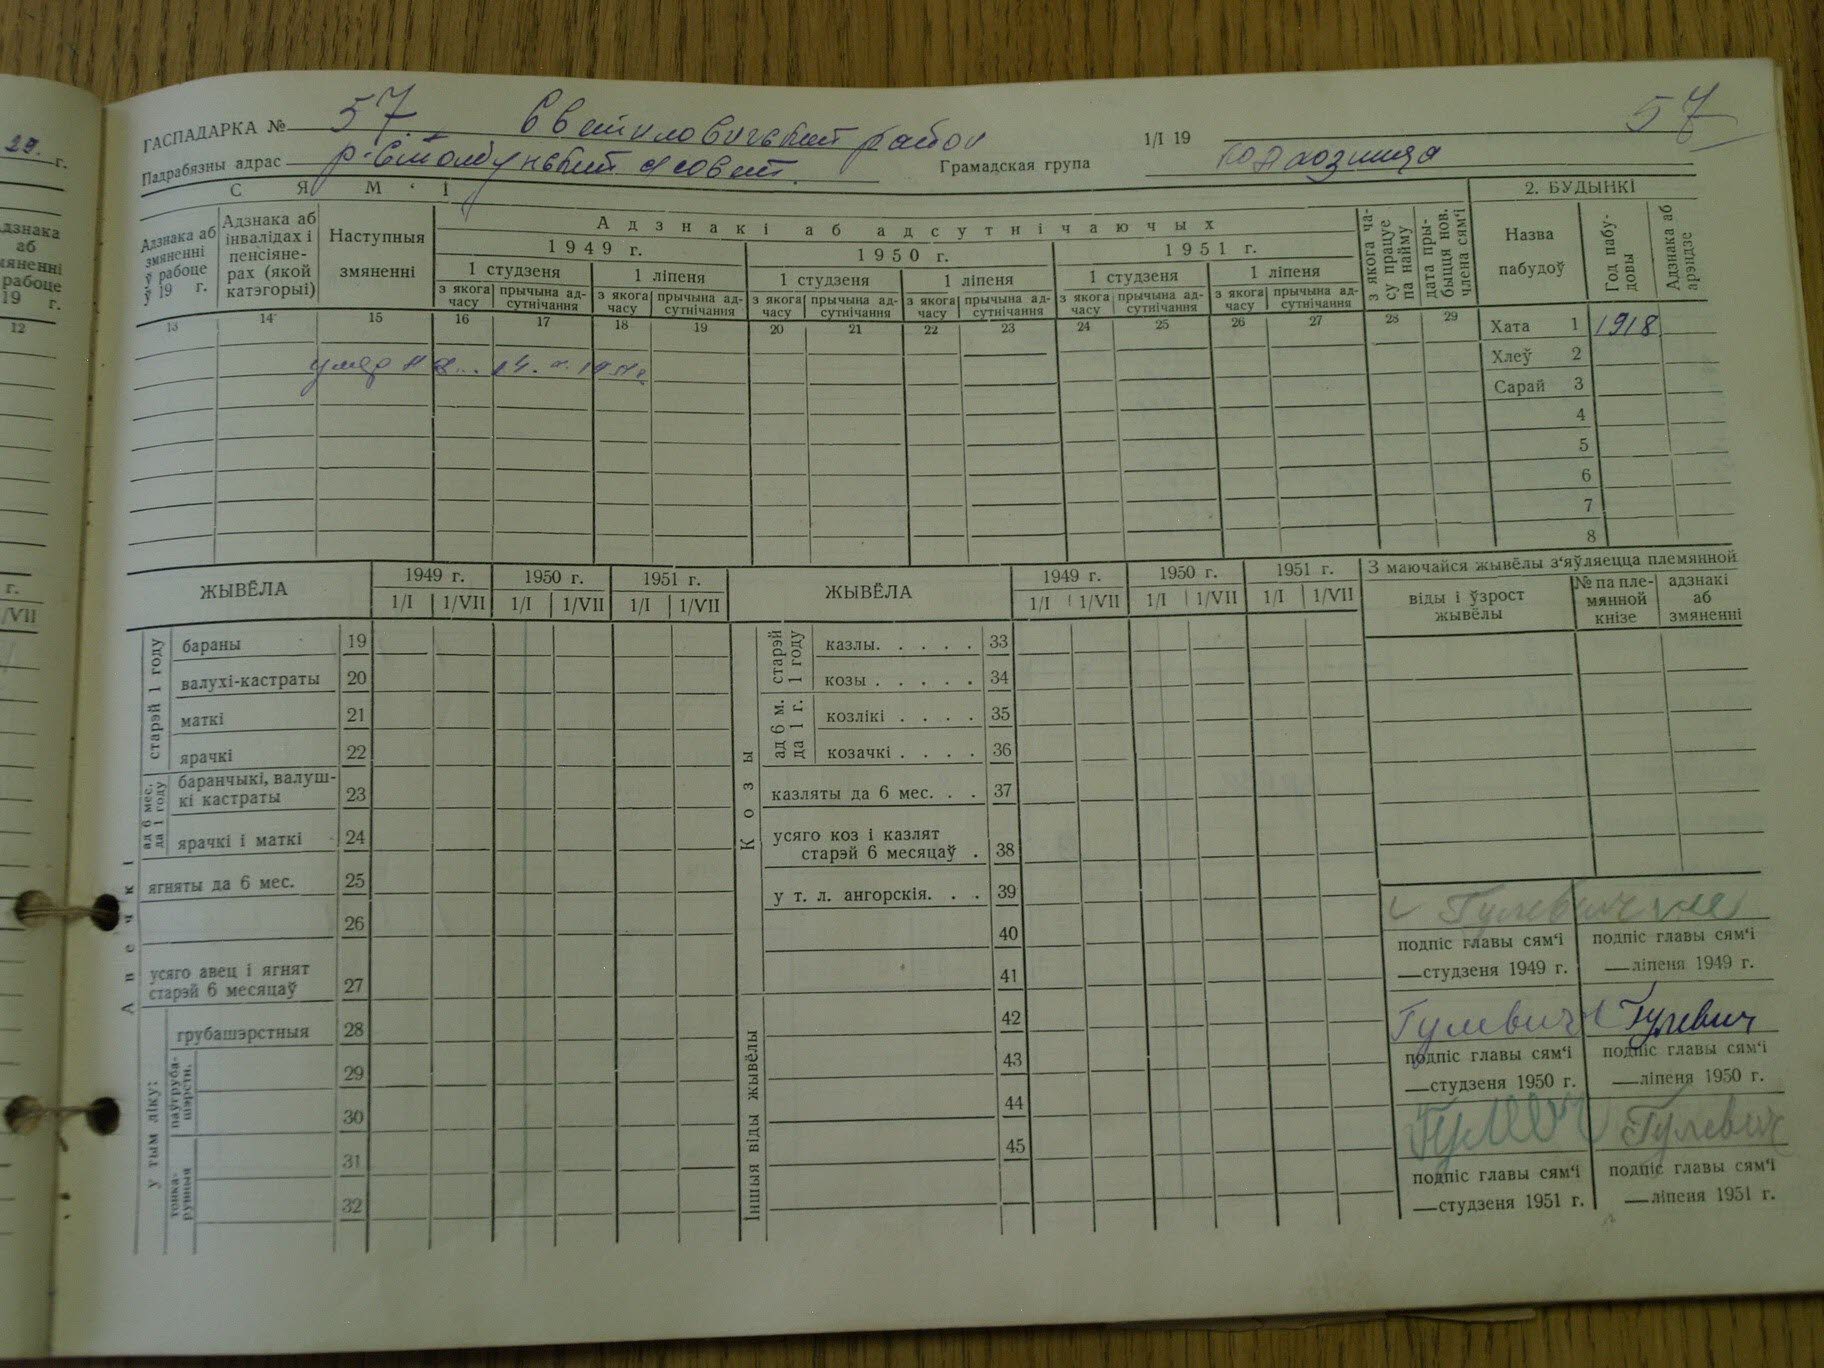 29. г.
ГАСПАДАРКА № 57. Светиловичский район 1/I 19 57
Падрабязны адрас Столбунский с совет. Грамадская група колхозница
С Я М ' І
2. БУДЫНКІ
Адзнака аб змяненні ў рабоце ў 19 г.
Адзнака аб інвалідах і пенсіянерах (якой катэгорыі)
Наступныя змяненні
Адзнакі аб адсутнічаючых
1949 г. 1950 г. 1951 г.
1 студзеня 1 ліпеня 1 студзеня 1 ліпеня 1 студзеня 1 ліпеня
з якога часу прычына адсутнічання з якога часу прычына адсутнічання з якога часу прычына адсутнічання з якога часу прычына адсутнічання з якога часу прычына адсутнічання з якога часу прычына адсутнічання
з якога часу працуе па найму
дата прыбыцця нов. члена сям'і
Назва пабудоў
Год пабудовы
Адзнака аб арэндзе
12 13 14 15 16 17 18 19 20 21 22 23 24 25 26 27 28 29
Хата 1 1918
Хлеў 2
Сарай 3
4
5
6
7
8
ЖЫВЁЛА 1949 г. 1950 г. 1951 г. ЖЫВЁЛА 1949 г. 1950 г. 1951 г.
1/I 1/VII 1/I 1/VII 1/I 1/VII 1/I 1/VII 1/I 1/VII 1/I 1/VII
З маючайся жывёлы з'яўляецца племянной
віды і ўзрост жывёлы
№ па племянной кнізе
адзнакі аб змяненні
Авечкі
старэй 1 году
бараны 19
валухі-кастраты 20
маткі 21
ярачкі 22
ад 6 мес. да 1 году
баранчыкі, валуш-
кі кастраты 23
ярачкі і маткі 24
ягняты да 6 мес. 25
26
усяго авец і ягнят
старэй 6 месяцаў 27
у тым ліку:
грубашэрстныя 28
паўгруба-
шэрстн.
29
30
тонка-
рунныя
31
32
Козы
старэй 1 году
казлы. . . . . 33
козы . . . . . 34
ад 6 м. да 1 г.
козлікі . . . . 35
козачкі . . . . 36
казляты да 6 мес. . . 37
усяго коз і казлят
старэй 6 месяцаў . 38
у т. л. ангорскія. . . 39
40
41
Іншыя віды жывёлы
42
43
44
45
подпіс главы сям'і подпіс главы сям'і
—студзеня 1949 г. —ліпеня 1949 г.
Гулевич Гулевич
подпіс главы сям'і подпіс главы сям'і
—студзеня 1950 г. —ліпеня 1950 г.
Гулевич Гулевич
подпіс главы сям'і подпіс главы сям'і
—студзеня 1951 г. —ліпеня 1951 г.